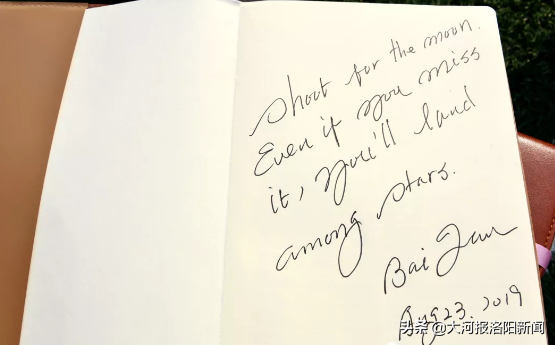 Shoot for the moon.
Even if you miss
it, you'll land
among stars.
Bai Jun
Aug 23. 2019
头条@大河报洛阳新闻